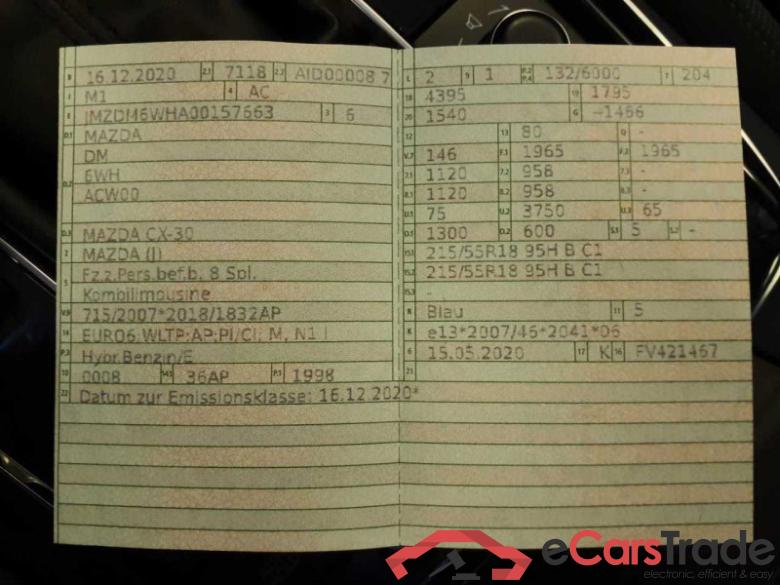 B 16.12.2020 2.1 7118 2.2 AID00008 7
J M1 4 AC
E JMZDM6WHA00157663 3 6
D.1 MAZDA
DM
D.2 6WH
ACW00
D.3 MAZDA CX-30
2 MAZDA (J)
5 Fz.z.Pers.bef.b. 8 Spl.
Kombilimousine
V.9 715/2007*2018/1832AP
14 EURO6;WLTP;AP;PI/CI; M, N1 I
P.3 Hybr.Benzin/E
10 0008 14.1 36AP P.1 1998
22 Datum zur Emissionsklasse: 16.12.2020*
L 2 9 1 P.2 P.4 132/6000 T 204
18 4395 19 1795
20 1540 G -1466
12 - 13 80 Q -
V.7 146 F.1 1965 F.2 1965
7.1 1120 7.2 958 7.3 -
8.1 1120 8.2 958 8.3 -
U.1 75 U.2 3750 U.3 65
O.1 1300 O.2 600 S.1 5 S.2 -
15.1 215/55R18 95H B C1
15.2 215/55R18 95H B C1
15.3 -
R Blau 11 5
K e13*2007/46*2041*06
6 15.05.2020 17 K 16 FV421467
21
eCarsTrade
electronic, efficient & easy